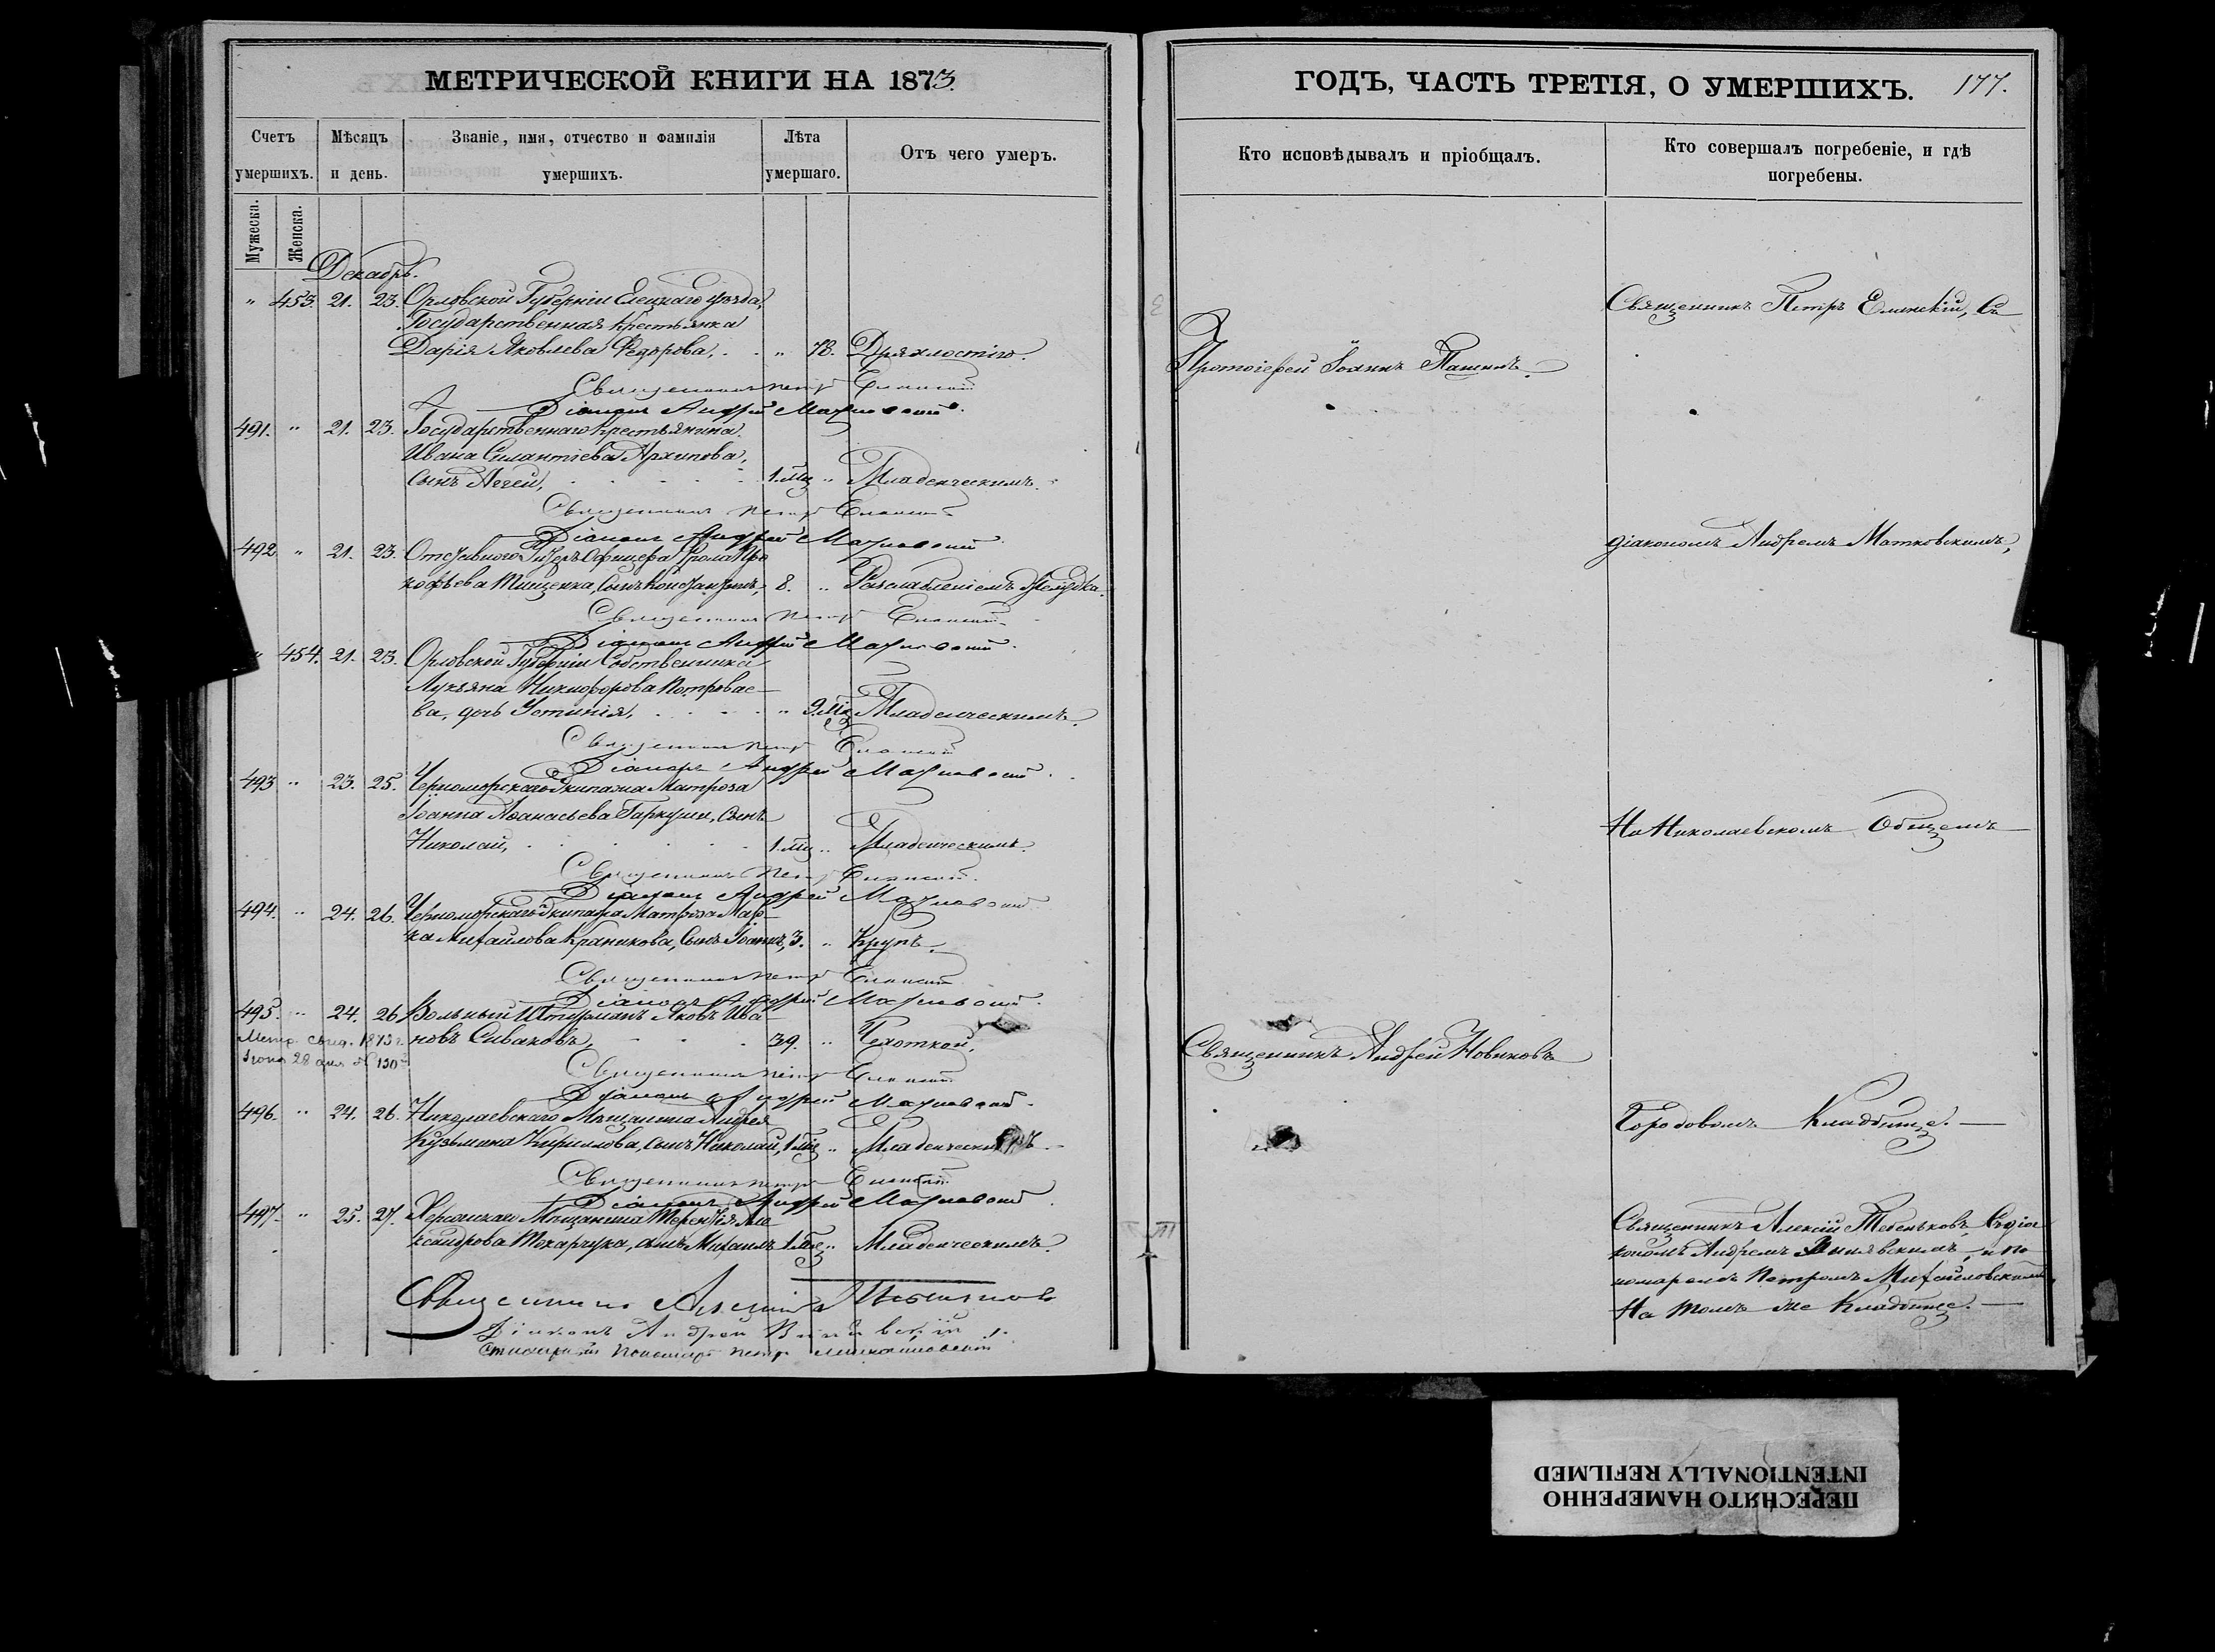 МЕТРИЧЕСКОЙ КНИГИ НА 1873.
Счетъ умершихъ.
Мужеска.
Женска.
Мѣсяцъ и день.
Званіе, имя, отчество и фамилія умершихъ.
Лѣта умершаго.
Отъ чего умеръ.
Декабрь.
" 453. 21. 23. Орловской Губерніи Елецкаго уѣзда,
Государственная крестьянка
Дарія Яковлева Федорова, " 78. Дряхлостію.
Священникъ Петръ Еланскій
Діаконъ Андрей
491. " 21. 23. Государственнаго крестьянина
Ивана Силантіева Архипова,
сынъ Аггей, 1 мц " Младенческимъ.
Священникъ Петръ
Діаконъ Андрей
492 " 21. 23. Отставного Унтеръ Офицера Фрола Про
кофьева Тищенка, сынъ Константинъ, 8. " Разслабленіемъ желудка.
Священникъ Петръ
Діаконъ Андрей
" 454. 21. 23. Орловской Губерніи Собственника
Лукьяна Никифорова
ва, дочь Устинія, " 9 мц Младенческимъ.
Священникъ Петръ
Діаконъ Андрей
493 " 23. 25. Черноморскаго Экипажа Матроза
Іоанна Аѳанасьева Гаркуши, сынъ
Николай, 1 мц " Младенческимъ.
Священникъ Петръ
Діаконъ Андрей
494. " 24. 26. Черноморскаго Экипажа Матроза Мар
ка Михайлова Краникова, сынъ Іоаннъ, 3. " Крупъ.
Священникъ Петръ
Діаконъ Андрей
495. " 24. 26 Вольный Штурманъ Яковъ Ива
новъ Сиваковъ, 39. " Чахоткой.
Метр. свид. 1875 г.
Іюня 28 дня № 130
Священникъ Петръ
Діаконъ Андрей
496. " 24. 26. Николаевскаго Мѣщанина Андрея
Кузьмина Кириллова, сынъ Николай, 1 мц " Младенческимъ
Священникъ Петръ
Діаконъ Андрей
497. " 25. 27. Херсонскаго Мѣщанина Терентія Але
ксандрова Токарчука, сынъ Михаилъ 1 мц " Младенческимъ.
Священникъ Алексій
Діаконъ Андрей
Пономарь Петръ
ГОДЪ, ЧАСТЬ ТРЕТІЯ, О УМЕРШИХЪ. 177.
Кто исповѣдывалъ и пріобщалъ.
Кто совершалъ погребеніе, и гдѣ погребены.
Священникъ Петръ Еланскій, Съ
Протоіерей Іоаннъ
діакономъ Андреемъ Матковскимъ,
На Николаевскомъ Общемъ
Священникъ Андрей Новиковъ
Городовомъ Кладбище.
Священникъ Алексій Тебеньковъ, Съ діа
кономъ Андреемъ и по
номаремъ Петромъ Михайловскимъ
На томъ же Кладбище.
ПЕРЕСНЯТО НАМЕРЕННО
INTENTIONALLY REFILMED